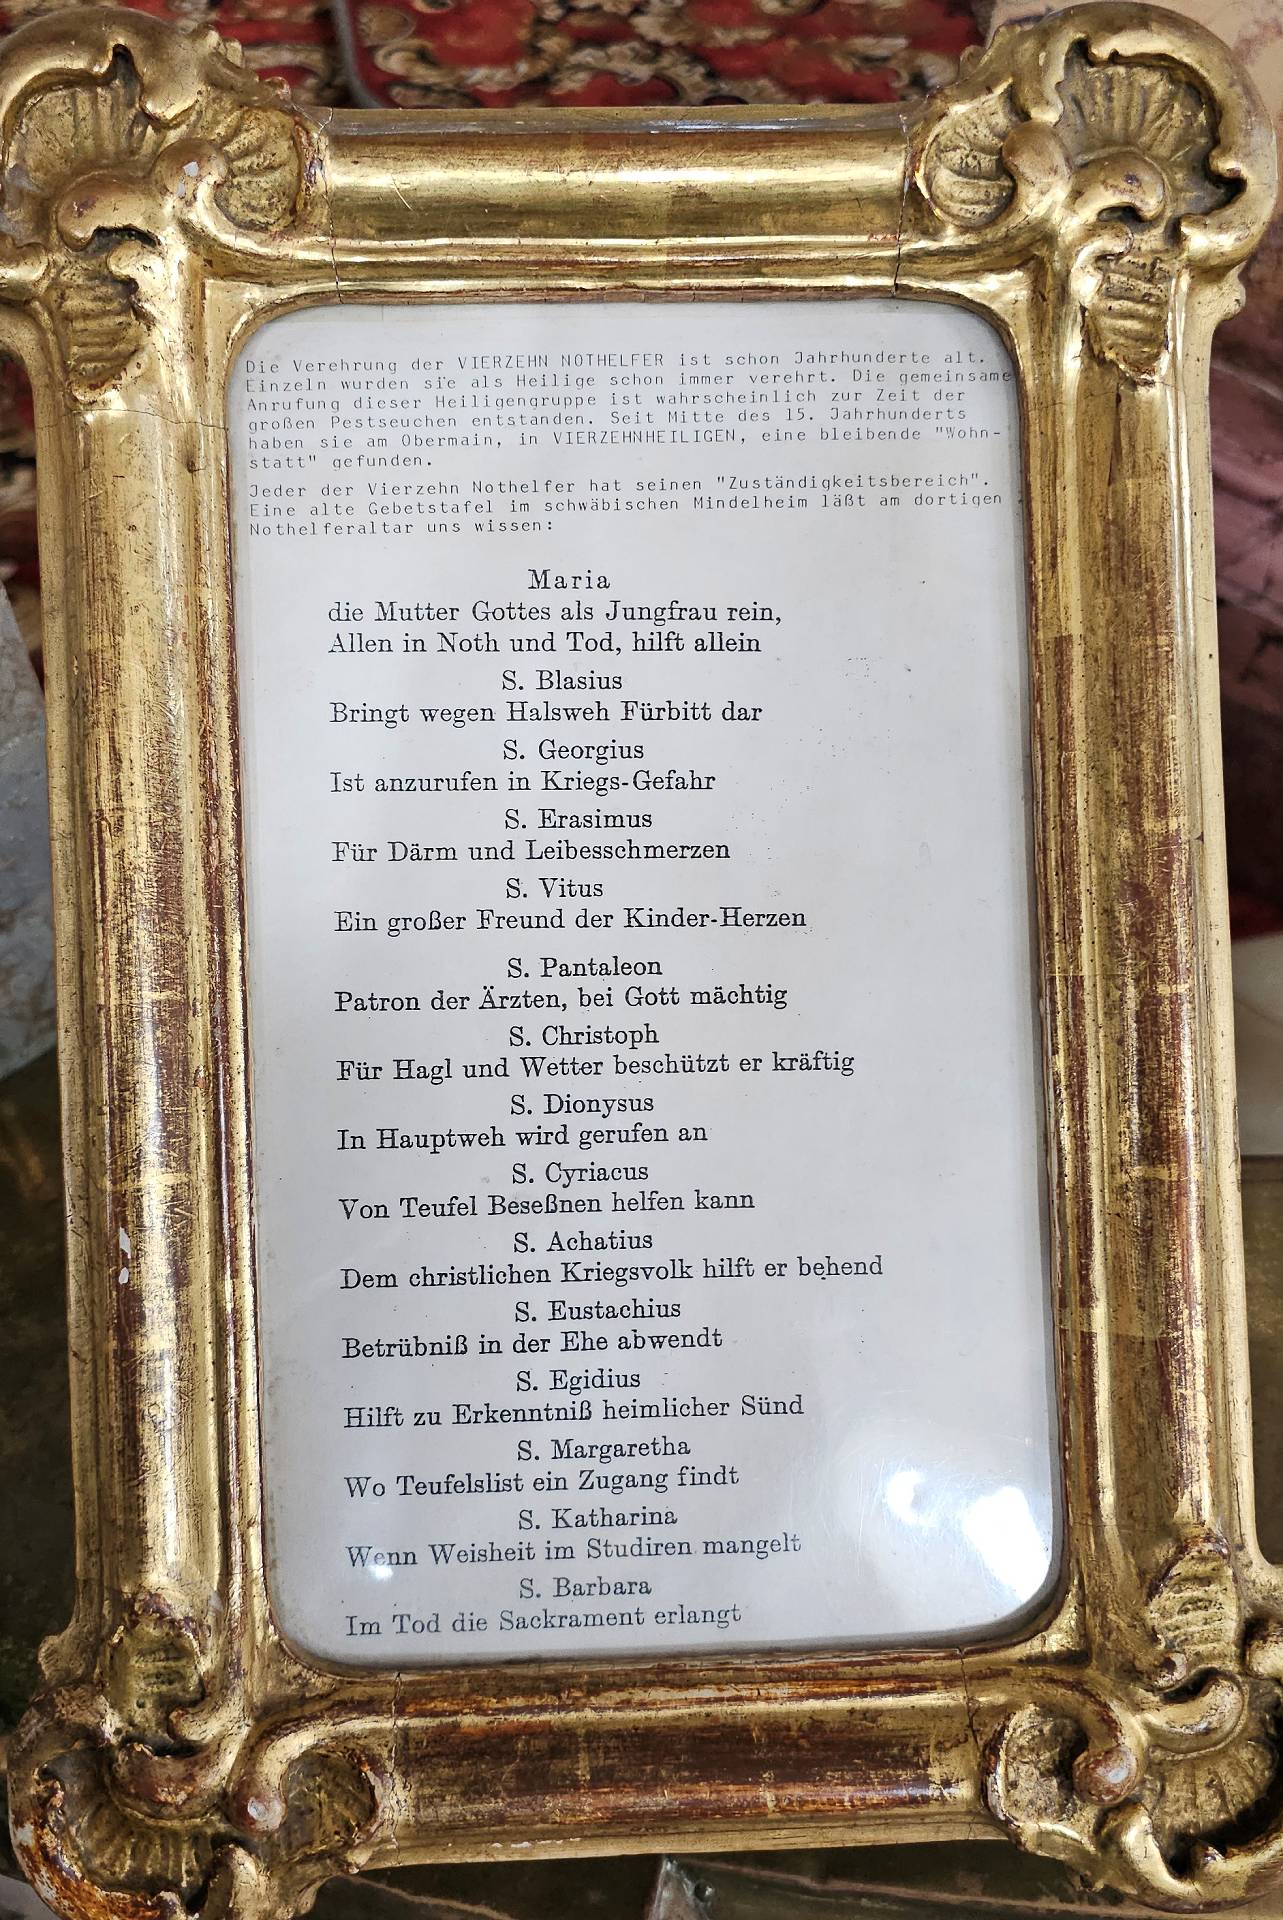 Die Verehrung der VIERZEHN NOTHELFER ist schon Jahrhunderte alt.
Einzeln wurden sie als Heilige schon immer verehrt. Die gemeinsame
Anrufung dieser Heiligengruppe ist wahrscheinlich zur Zeit der
großen Pestseuchen entstanden. Seit Mitte des 15. Jahrhunderts
haben sie am Obermain, in VIERZEHNHEILIGEN, eine bleibende "Wohn-
statt" gefunden.
Jeder der Vierzehn Nothelfer hat seinen "Zuständigkeitsbereich".
Eine alte Gebetstafel im schwäbischen Mindelheim läßt am dortigen
Nothelferaltar uns wissen:
Maria
die Mutter Gottes als Jungfrau rein,
Allen in Noth und Tod, hilft allein
S. Blasius
Bringt wegen Halsweh Fürbitt dar
S. Georgius
Ist anzurufen in Kriegs-Gefahr
S. Erasimus
Für Därm und Leibesschmerzen
S. Vitus
Ein großer Freund der Kinder-Herzen
S. Pantaleon
Patron der Ärzten, bei Gott mächtig
S. Christoph
Für Hagl und Wetter beschützt er kräftig
S. Dionysus
In Hauptweh wird gerufen an
S. Cyriacus
Von Teufel Beseßnen helfen kann
S. Achatius
Dem christlichen Kriegsvolk hilft er behend
S. Eustachius
Betrübniß in der Ehe abwendt
S. Egidius
Hilft zu Erkenntniß heimlicher Sünd
S. Margaretha
Wo Teufelslist ein Zugang findt
S. Katharina
Wenn Weisheit im Studiren mangelt
S. Barbara
Im Tod die Sackrament erlangt